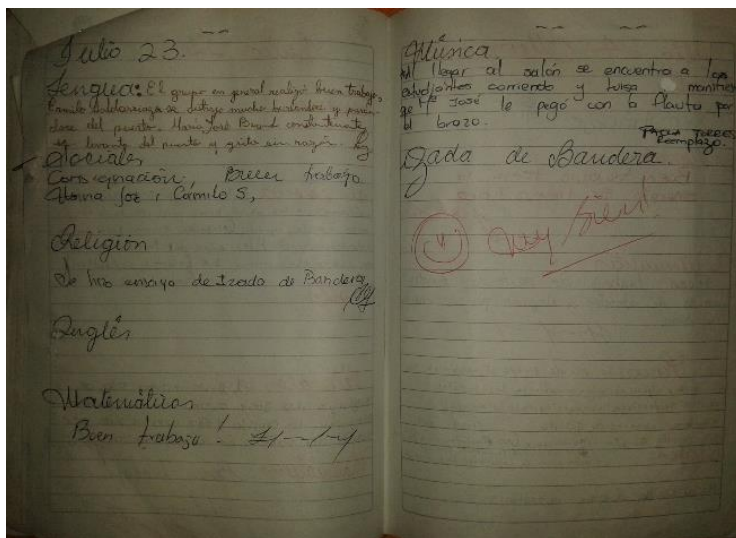 Julio 23.
Lengua: El grupo en general realizó buen trabajo,
Camilo Saldarriaga se distrajo mucho
dose del puesto. María José constantemente
se levanta del puesto y grita sin razón.
Sociales
Consignación, Buen trabajo
Camilo S,
Religión
Se hizo ensayo de Izado de Bandera
Inglés
Matemáticas
Buen trabajo!
Música
Al llegar al salón se encuentra a los
estudiantes corriendo y Luisa manifiesta
que José le pegó con la flauta por
el brazo.
Paola Torres
Reemplazo.
Izada de Bandera.
Muy Bien!